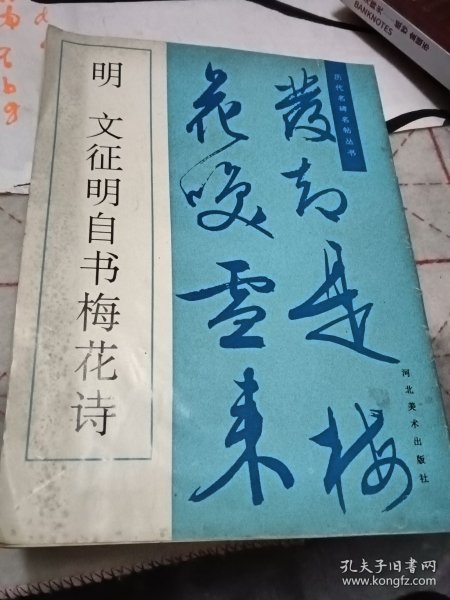 明 文征明自书梅花诗
历代名碑名帖丛书
发却是梅
花唤雪来
河北美术出版社
BANKNOTES
孔夫子旧书网
www.kongfz.com